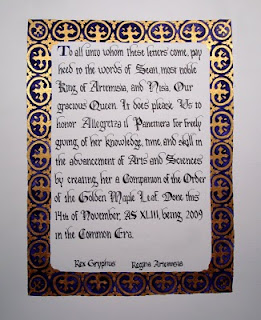 To all unto whom these letters come, pay
heed to the words of Sean, most noble
King of Artemisia, and Nisia, Our
gracious Queen. It does please Us to
honor Allegreza il Panemera for freely
giving of her knowledge, time, and skill in
the advancement of Arts and Sciences
by creating her a Companion of the Order
of the Golden Maple Leaf. Done this
14th of November, AS XLIII, being 2009
in the Common Era.
Rex Gryphus Regina Artemisia